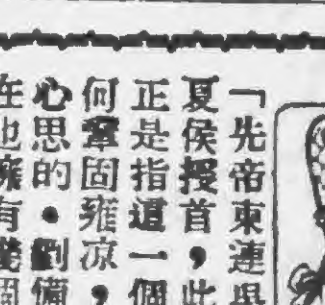 「先帝東連吳
夏侯授首,此
正是指這一個
何鞏固雍凉,
心思的。劉備
在也擁有幾個